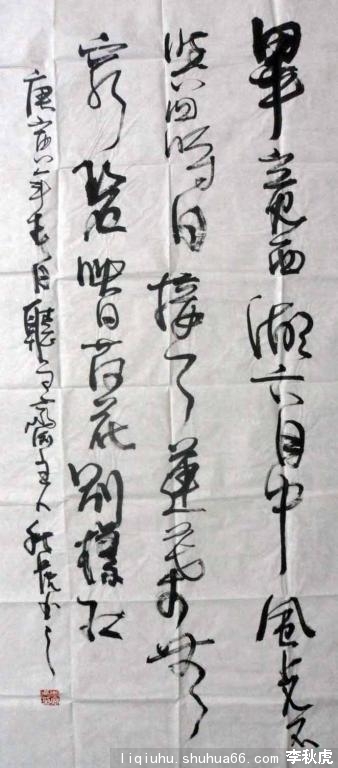 畢竟西湖六月中風光不
與四時同接天蓮葉無
窮碧映日荷花別樣紅
庚寅年 月聽雨齋主人秋虎书之
liqiuhu.shuhua66.com 李秋虎